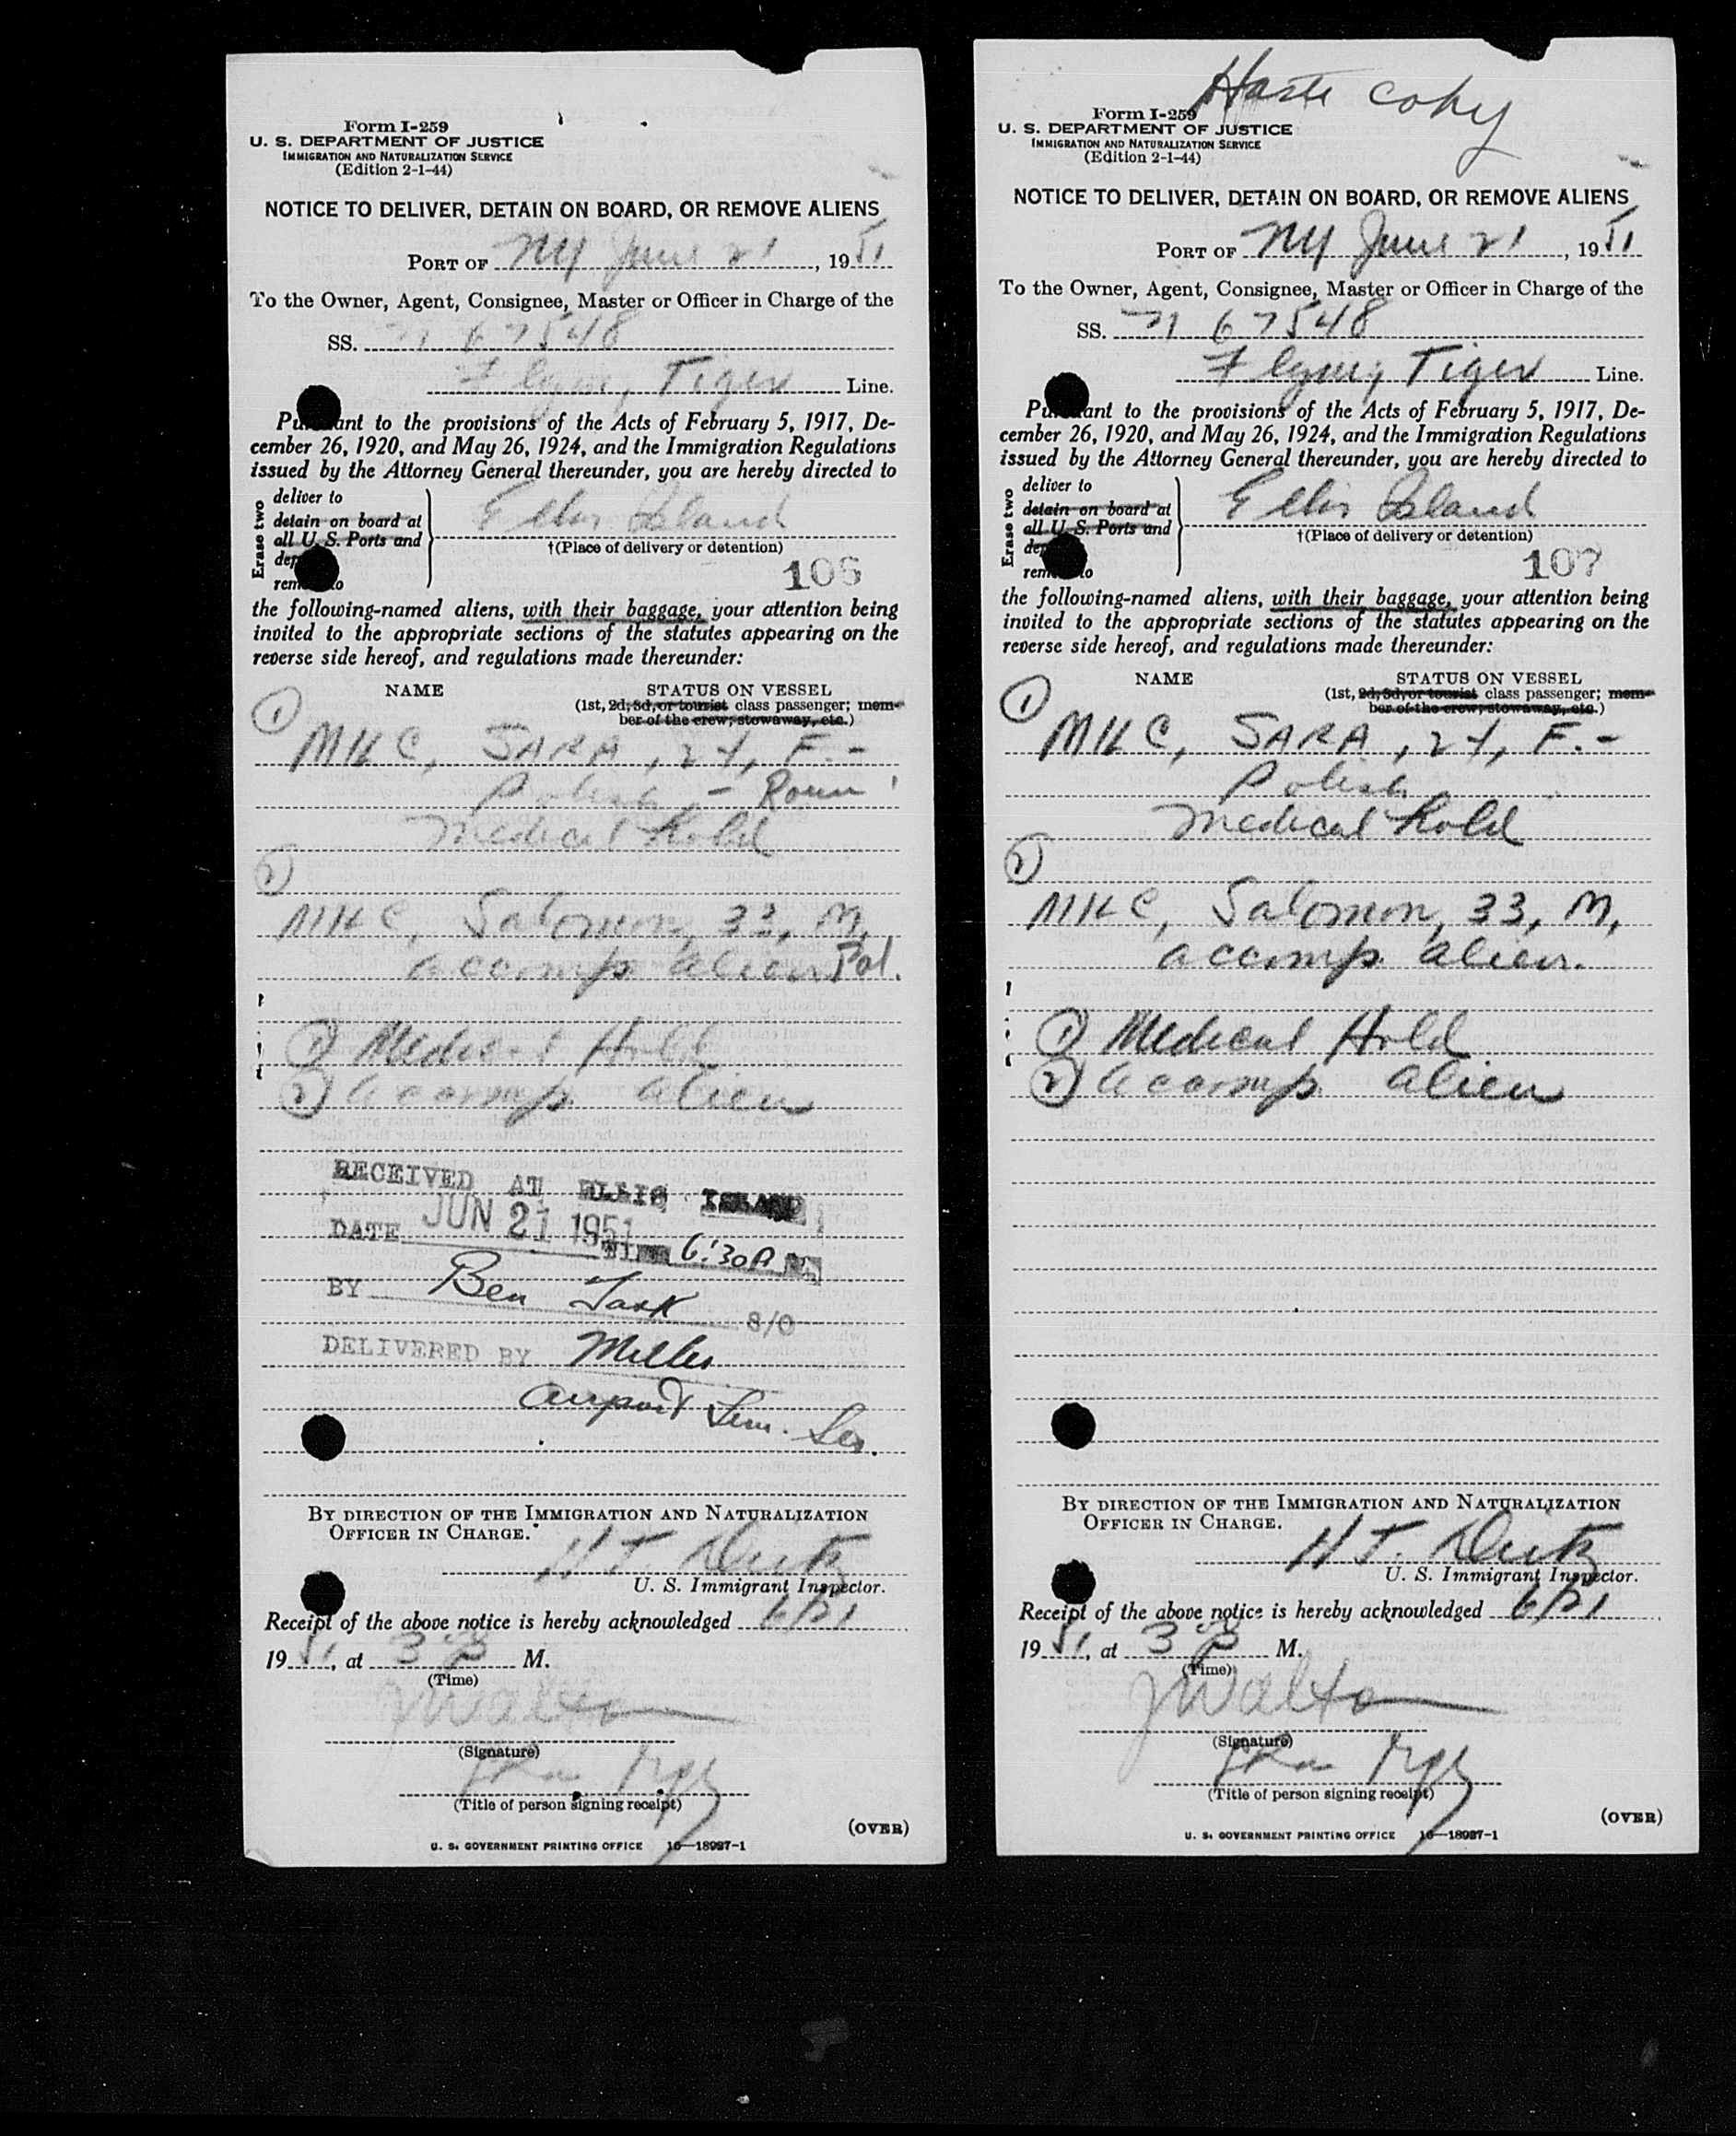 Form I-259
U. S. DEPARTMENT OF JUSTICE
IMMIGRATION AND NATURALIZATION SERVICE
(Edition 2-1-44)
NOTICE TO DELIVER, DETAIN ON BOARD, OR REMOVE ALIENS
PORT OF NY June 21, 1951
To the Owner, Agent, Consignee, Master or Officer in Charge of the
SS. N 67548
Flying Tiger Line.
Pursuant to the provisions of the Acts of February 5, 1917, De-
cember 26, 1920, and May 26, 1924, and the Immigration Regulations
issued by the Attorney General thereunder, you are hereby directed to
Erase two
deliver to
detain on board at
all U. S. Ports and
Ellis Island
†(Place of delivery or detention)
106
the following-named aliens, with their baggage, your attention being
invited to the appropriate sections of the statutes appearing on the
reverse side hereof, and regulations made thereunder:
NAME
STATUS ON VESSEL
(1st, 2d, 3d, or tourist class passenger; mem-
ber of the crew, stowaway, etc.)
1
MKC, SARA, 24, F. -
Polish - Roum
Medical hold
2
MKC, Salomon, 33, M,
accomp alien Pol.
1 Medical Hold
2 accomp alien
RECEIVED AT ELLIS ISLAND
DATE JUN 21 1951 TIME 6:30 P M
BY Ben
8/0
DELIVERED BY Miller
Airport
BY DIRECTION OF THE IMMIGRATION AND NATURALIZATION
OFFICER IN CHARGE.
H T.
U. S. Immigrant Inspector.
Receipt of the above notice is hereby acknowledged 6/21
1951, at 3 P M.
(Time)
J Walton
(Signature)
(Title of person signing receipt)
(OVER)
U. S. GOVERNMENT PRINTING OFFICE 16—18987-1
copy
Form I-259
U. S. DEPARTMENT OF JUSTICE
IMMIGRATION AND NATURALIZATION SERVICE
(Edition 2-1-44)
NOTICE TO DELIVER, DETAIN ON BOARD, OR REMOVE ALIENS
PORT OF NY June 21, 1951
To the Owner, Agent, Consignee, Master or Officer in Charge of the
SS. N 67548
Flying Tiger Line.
Pursuant to the provisions of the Acts of February 5, 1917, De-
cember 26, 1920, and May 26, 1924, and the Immigration Regulations
issued by the Attorney General thereunder, you are hereby directed to
Erase two
deliver to
detain on board at
all U. S. Ports and
Ellis Island
†(Place of delivery or detention)
107
the following-named aliens, with their baggage, your attention being
invited to the appropriate sections of the statutes appearing on the
reverse side hereof, and regulations made thereunder:
NAME
STATUS ON VESSEL
(1st, 2d, 3d, or tourist class passenger; mem-
ber of the crew, stowaway, etc.)
1
MKC, SARA, 24, F. -
Polish
Medical hold
2
MKC, Salomon, 33, M,
accomp alien.
1 Medical Hold
2 accomp alien
BY DIRECTION OF THE IMMIGRATION AND NATURALIZATION
OFFICER IN CHARGE.
H T.
U. S. Immigrant Inspector.
Receipt of the above notice is hereby acknowledged 6/21
1951, at 3 P M.
(Time)
J Walton
(Signature)
(Title of person signing receipt)
(OVER)
U. S. GOVERNMENT PRINTING OFFICE 16—18987-1